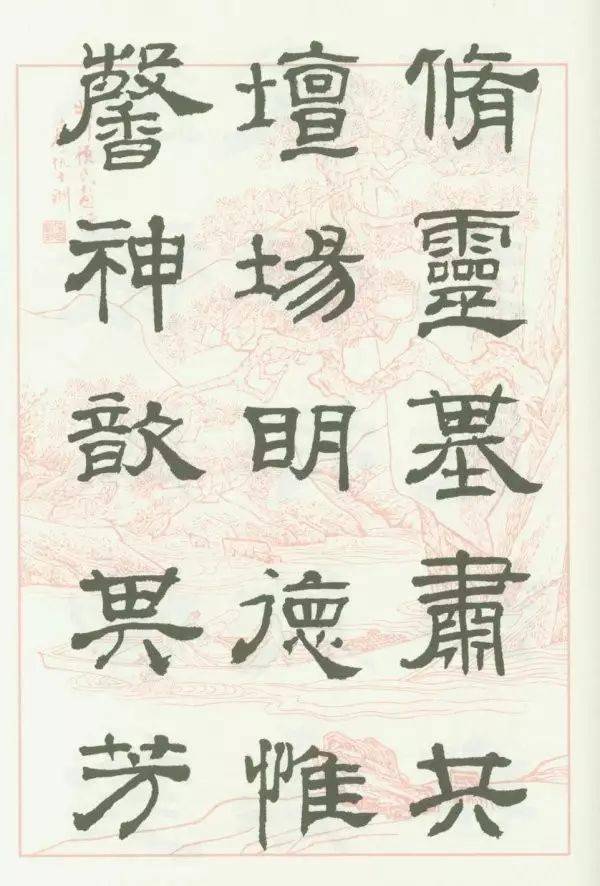 脩靈基肅共
壇場明德惟
馨神歆其芳